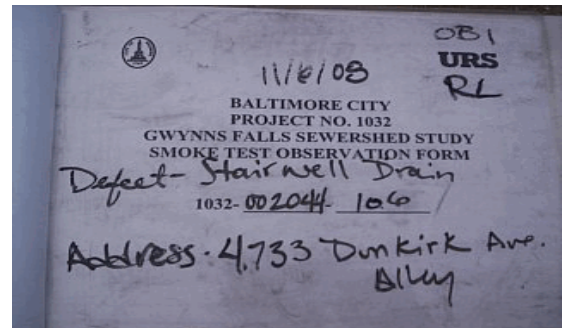 OB1
11/6/08
URS
RL
BALTIMORE CITY
PROJECT NO. 1032
GWYNNS FALLS SEWERSHED STUDY
SMOKE TEST OBSERVATION FORM
Defect- Stairwell Drain
1032- 002044- 106
Address. 4733 Dunkirk Ave.
Alley